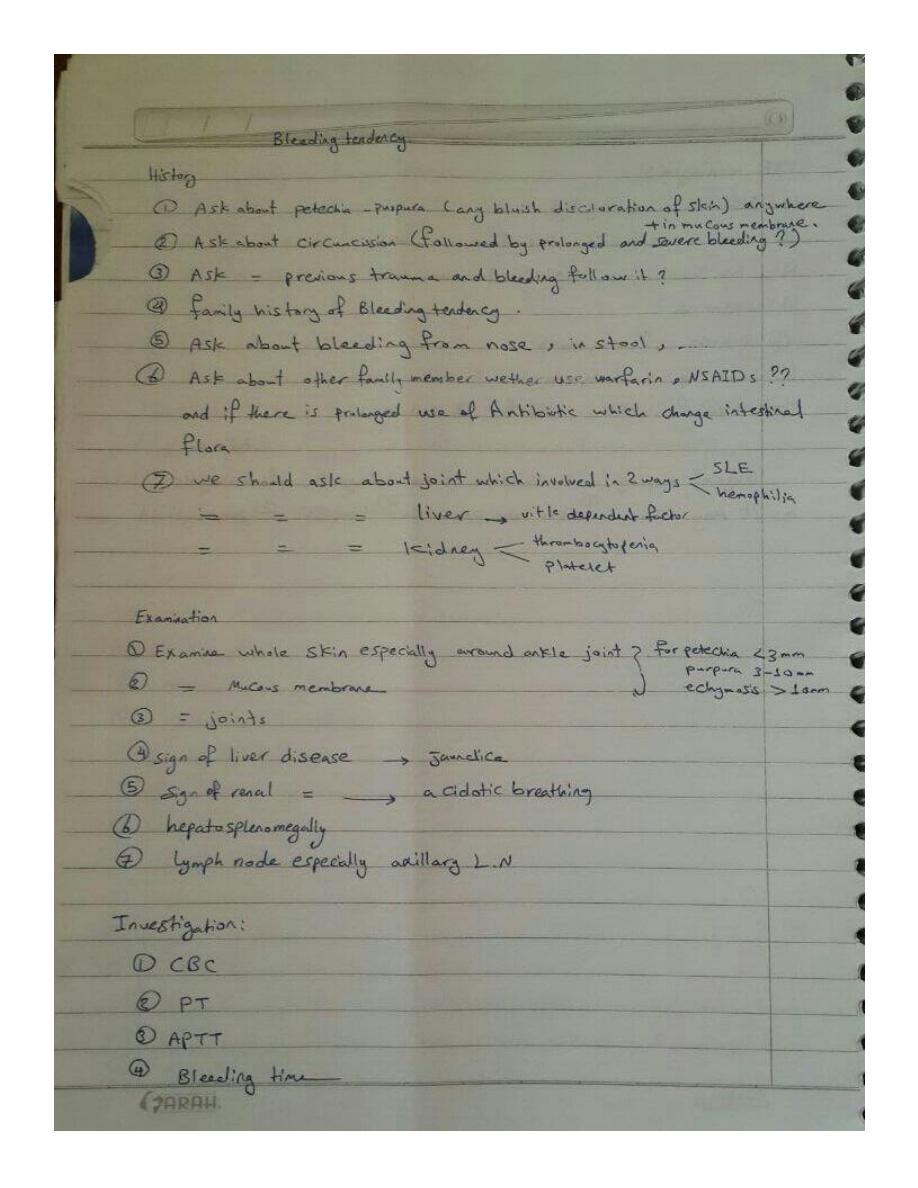 Bleeding tendency
History
① Ask about petechia - purpura (any bluish discloration of skin) anywhere
+ in mucous membrane.
② Ask about circumcission (followed by prolonged and severe bleeding?)
③ Ask = previous trauma and bleeding follow it?
④ family history of Bleeding tendency.
⑤ Ask about bleeding from nose, in stool, .....
⑥ Ask about other family member wether use warfarin, NSAIDs ??
and if there is prolonged use of Antibiotic which change intestinal
flora
⑦ we should ask about joint which involved in 2 ways < SLE
hemophilia
= = = liver → vit k dependent factor
= = = kidney < thrombocytopenia
platelet
Examination
① Examine whole skin especially around ankle joint } for petechia <3mm
purpura 3-10mm
② = Mucous membrane
echymosis >10mm
③ = joints
④ sign of liver disease → Jaundice
⑤ Sign of renal = → acidotic breathing
⑥ hepatosplenomegally
⑦ lymph node especially axillary L.N
Investigation:
① CBC
② PT
③ APTT
④ Bleeding time